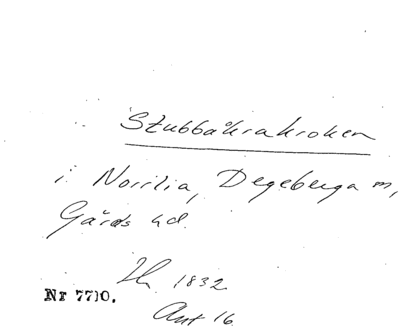 Stubbåkrakroken
i Norrlia, Degeberga m,
Gärds hd.
1832
Nr 7710.
Akt 16.